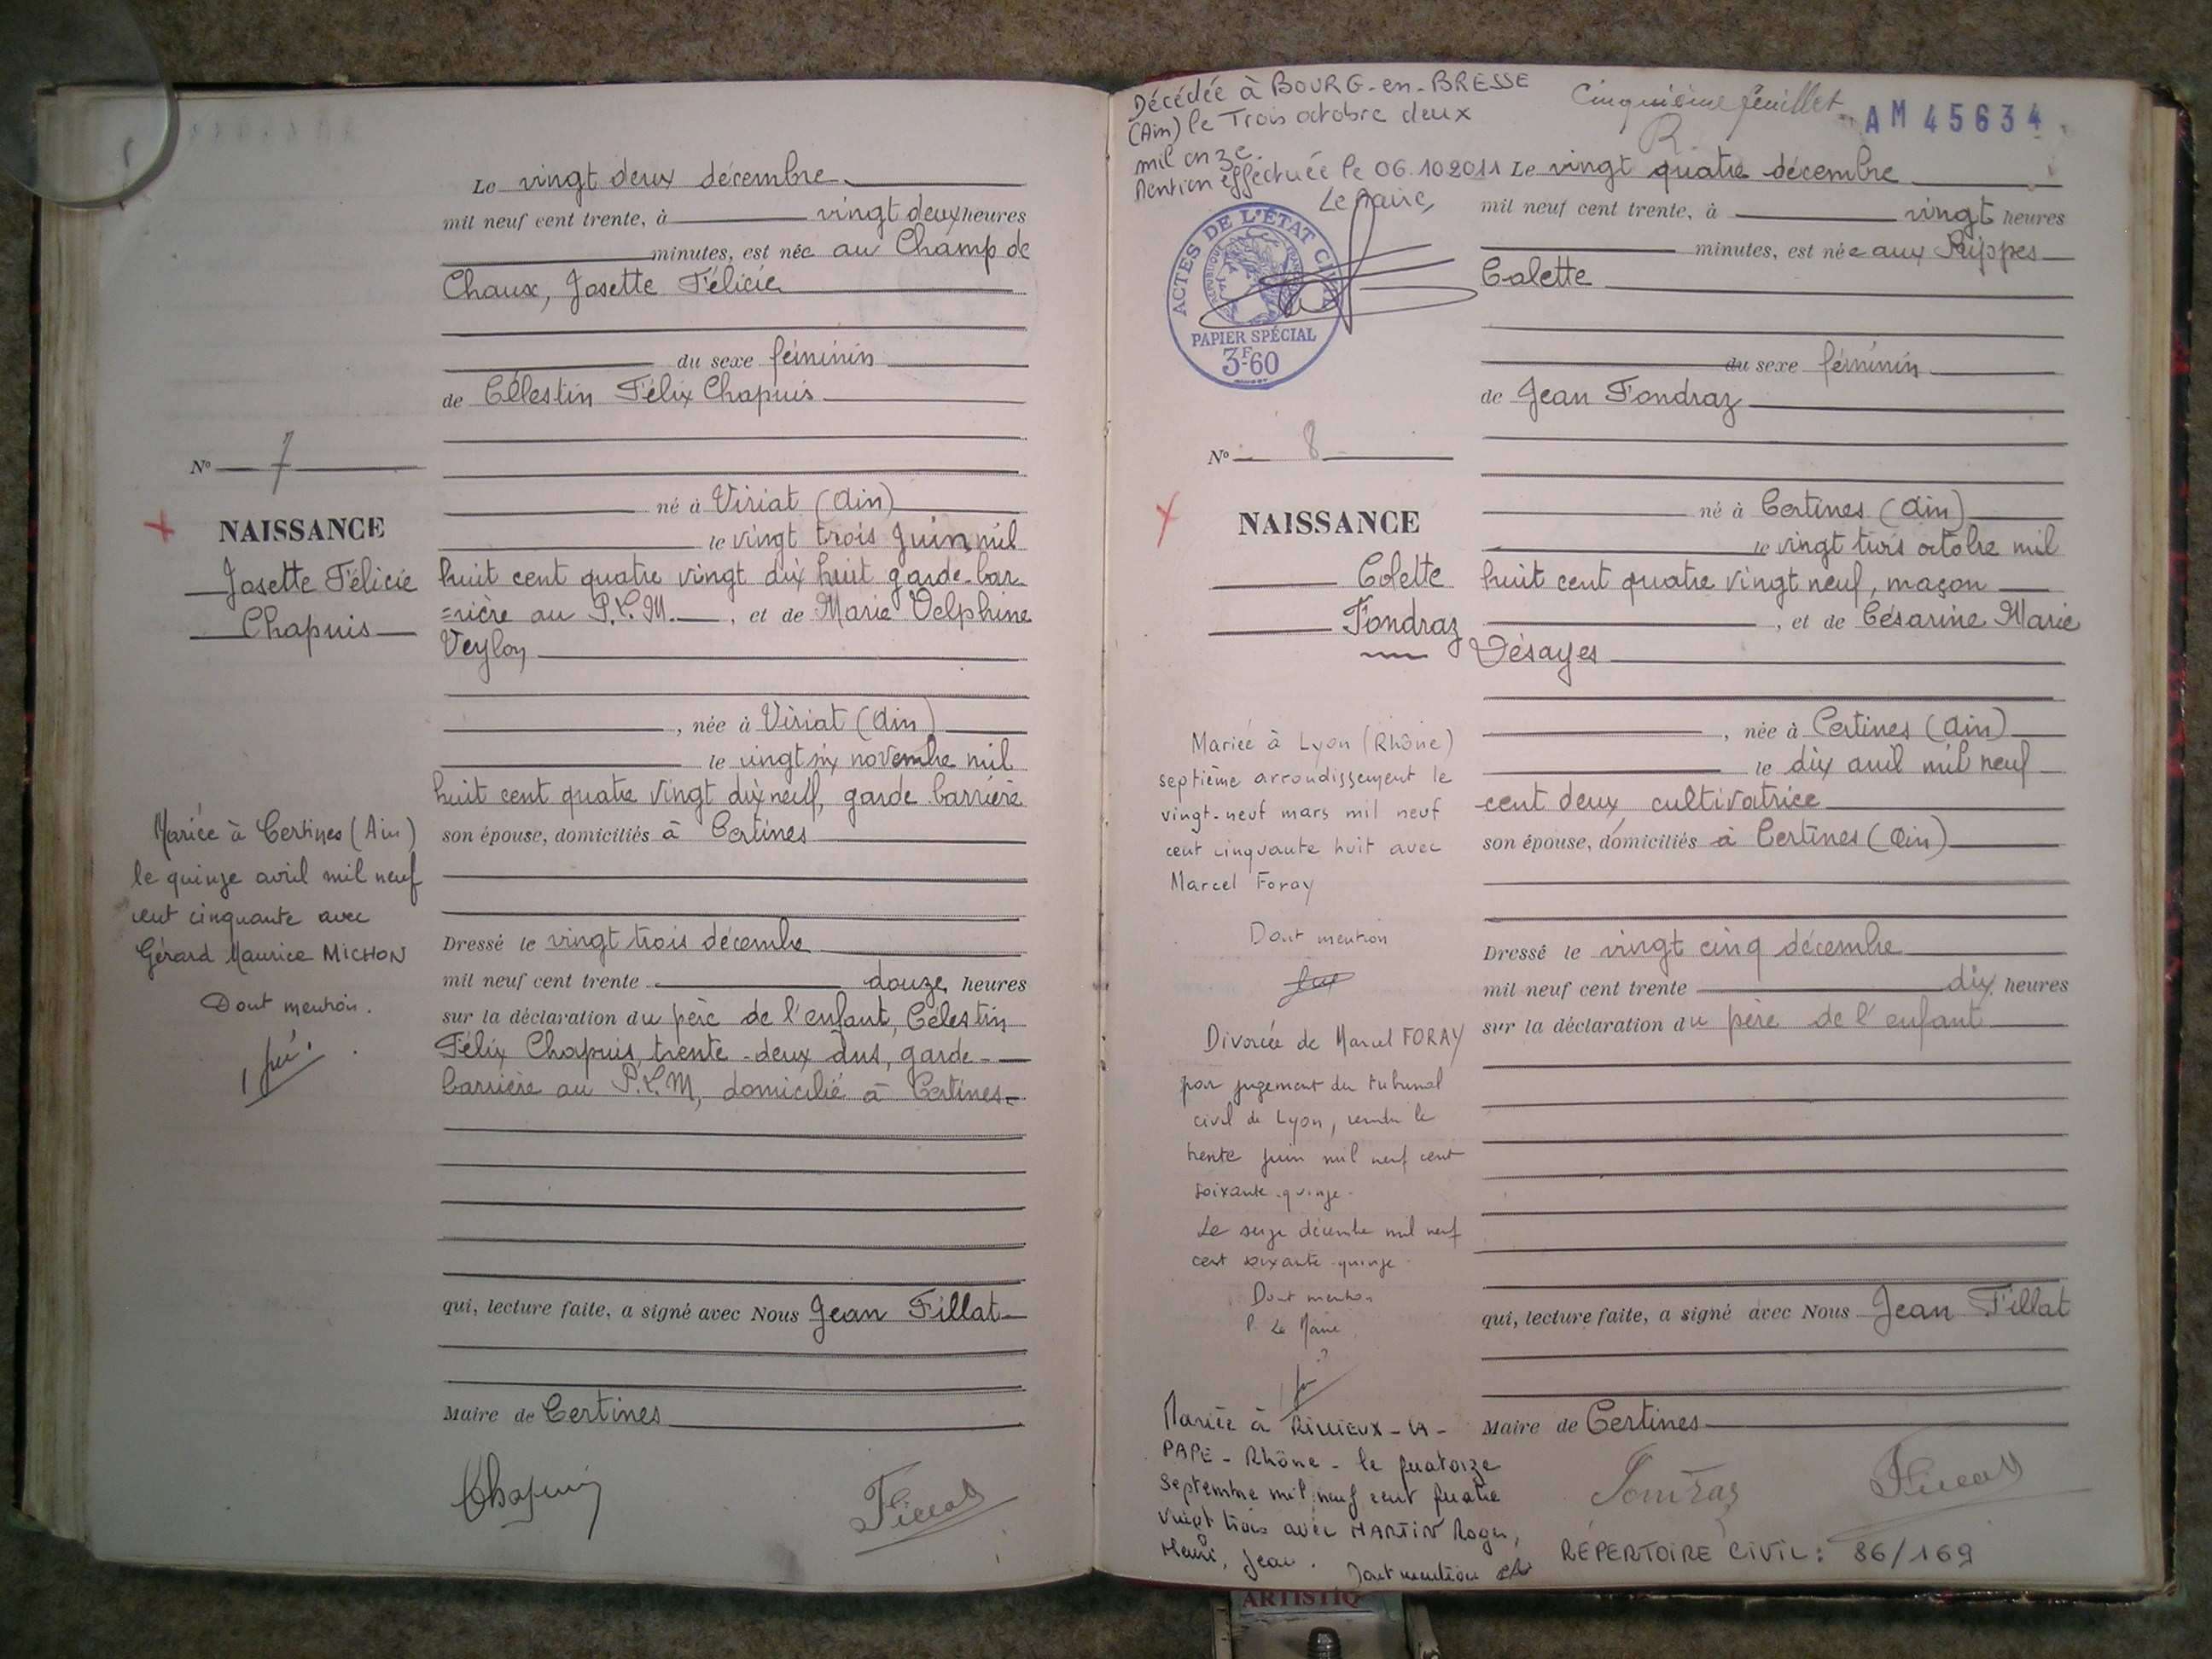 Le vingt deux décembre
mil neuf cent trente, à vingt deux heures
minutes, est née au Champ de
Chaux, Josette Félicie
du sexe féminin
de Célestin Félix Chapuis
né à Viriat (Ain)
le vingt trois Juin mil
huit cent quatre vingt dix huit garde-bar-
=rière au P.L.M. , et de Marie Delphine
Veylon
, née à Viriat (Ain)
le vingt six novembre mil
huit cent quatre vingt dix neuf, garde barrière
son épouse, domiciliés à Certines
Dressé le vingt trois décembre
mil neuf cent trente douze heures
sur la déclaration du père de l'enfant, Célestin
Félix Chapuis, trente-deux ans, garde-
barrière au P.L.M, domicilié à Certines
qui, lecture faite, a signé avec Nous Jean Fillat
Maire de Certines
Chapuis
Fillat
N° 7
NAISSANCE
Josette Félicie
Chapuis
Mariée à Certines (Ain)
le quinze avril mil neuf
cent cinquante avec
Gérard Maurice MICHON
Dont mention.
Décédée à BOURG-en-BRESSE
(Ain) le Trois octobre deux
mil onze.
Mention effectuée le 06.10 2011
Le Maire,
ACTES DE L'ÉTAT CIVIL
PAPIER SPÉCIAL
3F60
N° 8
NAISSANCE
Colette
Fondraz
Mariée à Lyon (Rhône)
septième arrondissement le
vingt-neuf mars mil neuf
cent cinquante huit avec
Marcel Foray
Dont mention
Divorcée de Marcel FORAY
par jugement du tribunal
civil de Lyon, rendu le
trente juin mil neuf cent
soixante-quinze.
Le seize décembre mil neuf
cent soixante-quinze.
Dont mention
P. Le Maire
Mariée à RILLIEUX-LA-
PAPE-Rhône-le quatorze
Septembre mil neuf cent quatre
vingt trois avec MARTIN Roger,
Henri, Jean. Dont mention
Cinquième feuillet
R
AM 45634
Le vingt quatre décembre
mil neuf cent trente, à vingt heures
minutes, est née aux Rippes
Colette
du sexe féminin
de Jean Fondraz
né à Certines (Ain)
le vingt trois octobre mil
huit cent quatre vingt neuf, maçon
, et de Césarine Marie
Désayes
, née à Certines (Ain)
le dix avril mil neuf
cent deux, cultivatrice
son épouse, domiciliés à Certines (Ain)
Dressé le vingt cinq décembre
mil neuf cent trente dix heures
sur la déclaration du père de l'enfant
qui, lecture faite, a signé avec Nous Jean Fillat
Maire de Certines
Fondraz
Fillat
RÉPERTOIRE CIVIL : 86/169
ARTISTIQ